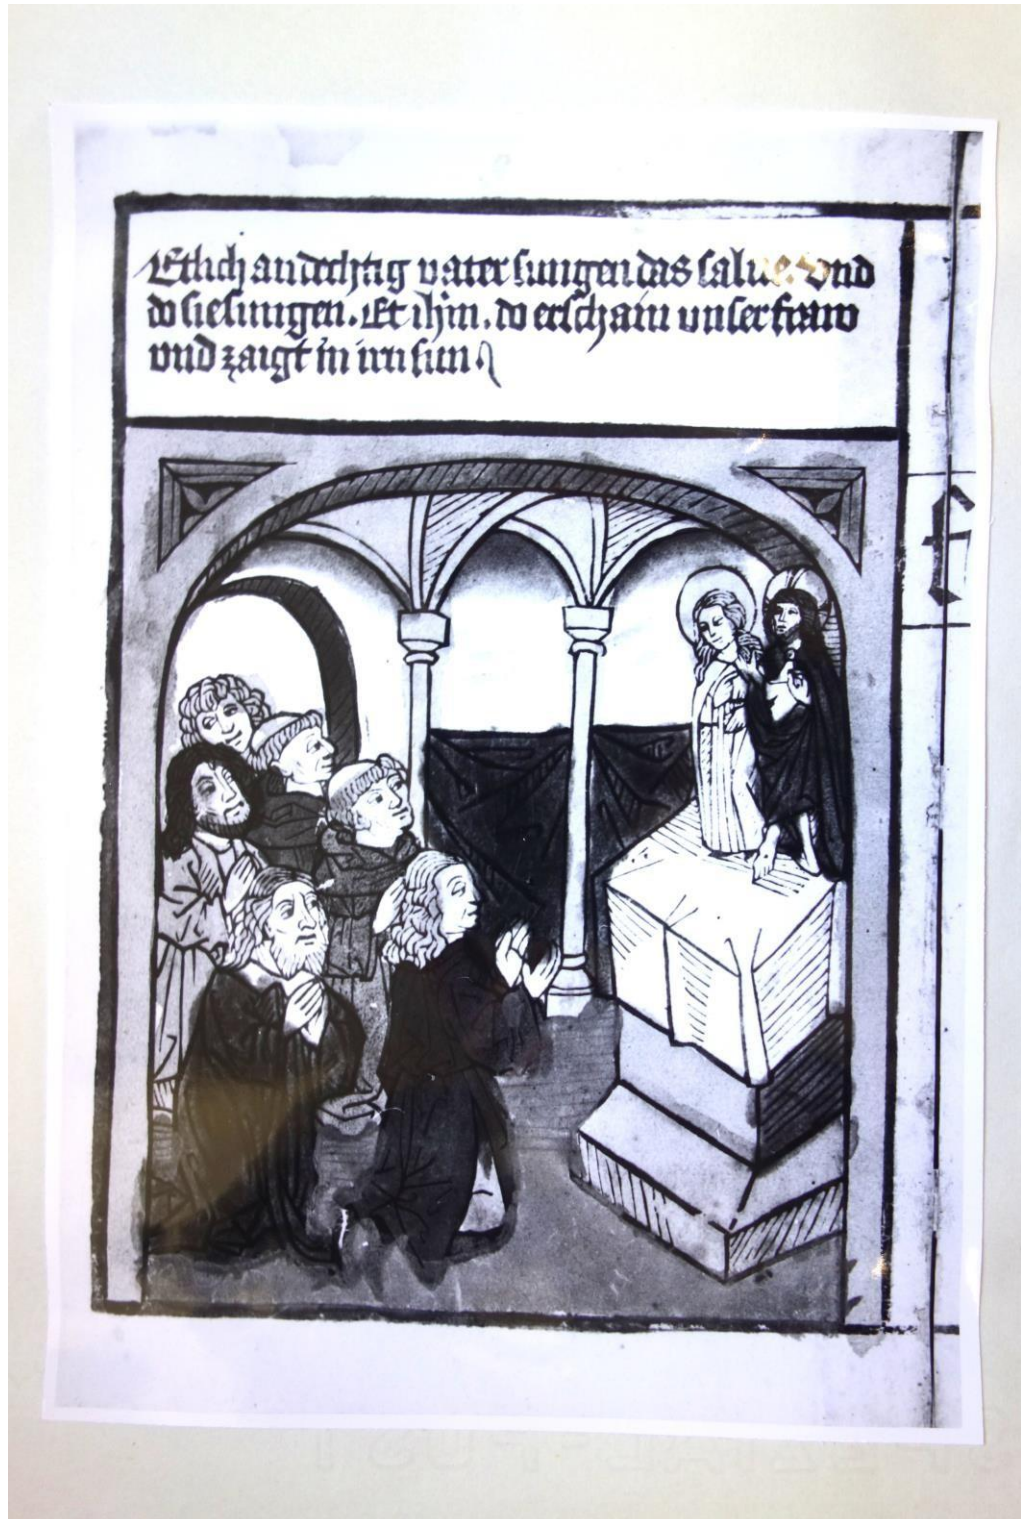 Etlich andechtig vater sungen das salue. Vnd
do sie sungen. Et ihm. do erschain vnser fraw
vnd zaigt in irn sun.